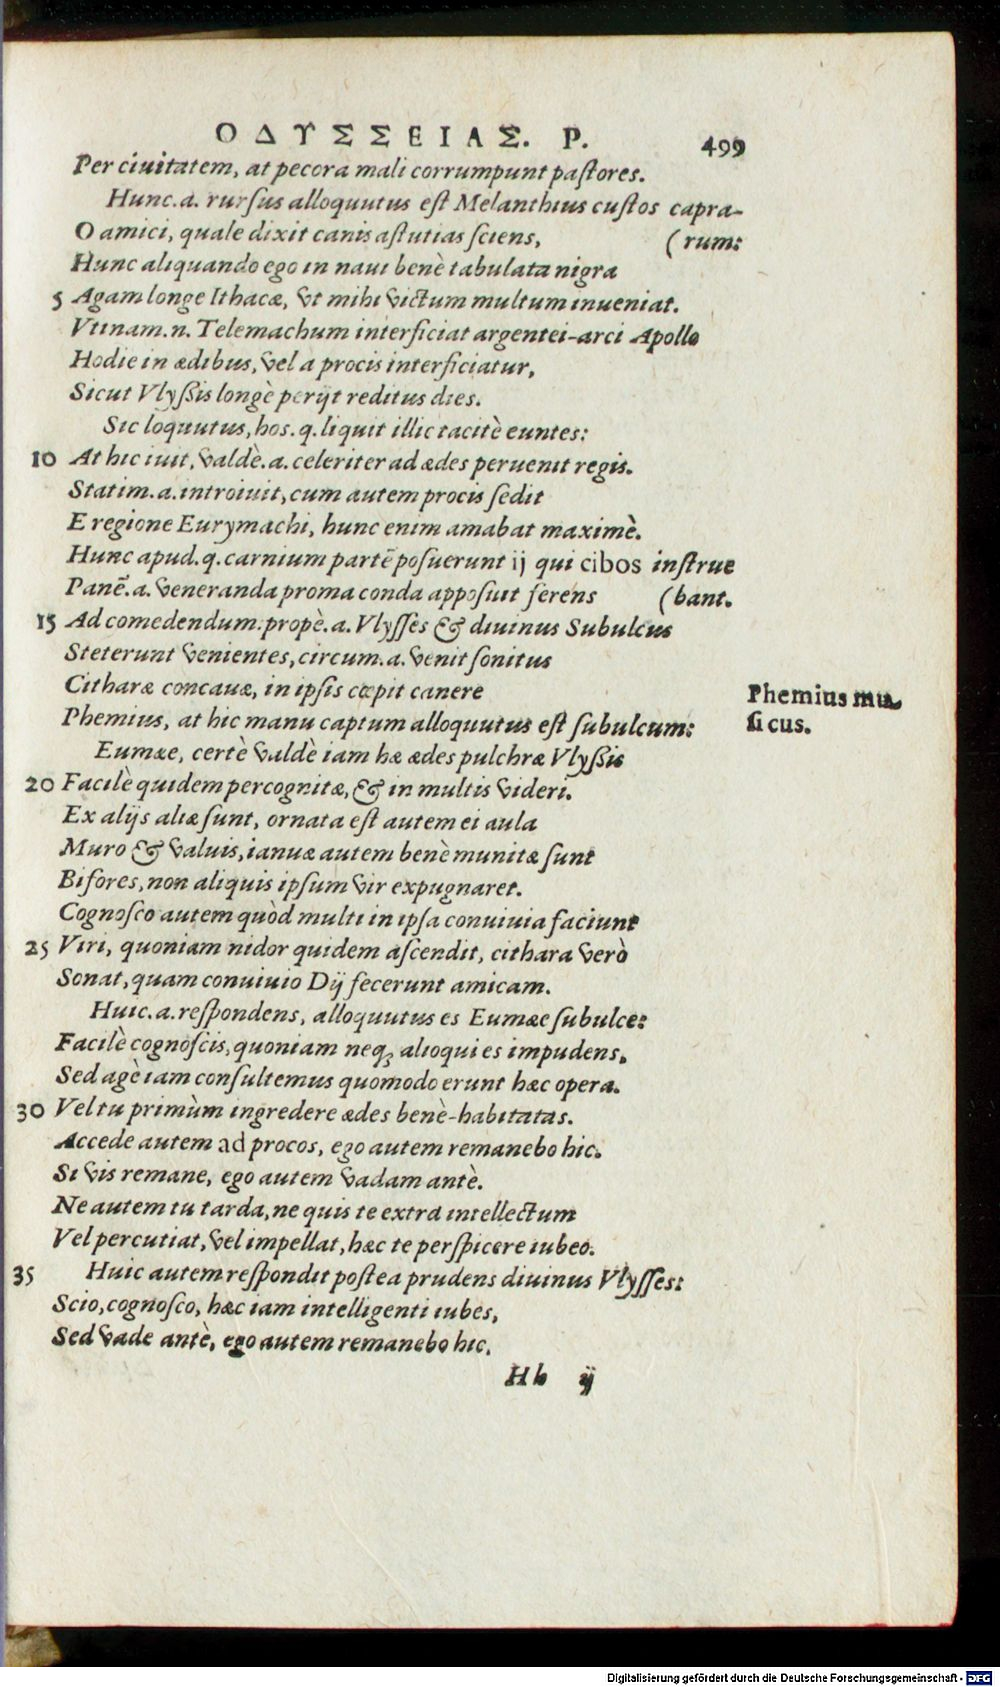 ΟΔΥΣΣΕΙΑΣ. Ρ. 499
Per ciuitatem, at pecora mali corrumpunt pastores.
Hunc.a. rursus alloquutus est Melanthius custos capra-
O amici, quale dixit canis astutias sciens, (rum:
Hunc aliquando ego in naui benè tabulata nigra
5 Agam longe Ithacæ, vt mihi victum multum inueniat.
Vtinam.n. Telemachum interficiat argentei-arci Apollo
Hodie in ædibus, vel a procis interficiatur,
Sicut Vlyssis longè perijt reditus dies.
Sic loquutus, hos.q. liquit illic tacitè euntes:
10 At hic iuit, valdè.a. celeriter ad ædes peruenit regis.
Statim.a. introiuit, cum autem procis sedit
E regione Eurymachi, hunc enim amabat maximè.
Hunc apud.q. carnium partē posuerunt ij qui cibos instrue
Panē.a. veneranda proma conda apposuit ferens (bant.
15 Ad comedendum. propè.a. Vlysses & diuinus Subulcus
Steterunt venientes, circum.a. venit sonitus
Citharæ concauæ, in ipsis cœpit canere
Phemius mu-
sicus.
Phemius, at hic manu captum alloquutus est subulcum:
Eumæe, certè valdè iam hæ ædes pulchræ Vlyssis
20 Facilè quidem percognitæ, & in multis videri.
Ex alijs aliæ sunt, ornata est autem ei aula
Muro & valuis, ianuæ autem benè munitæ sunt
Bifores, non aliquis ipsum vir expugnaret.
Cognosco autem quòd multi in ipsa conuiuia faciunt
25 Viri, quoniam nidor quidem ascendit, cithara verò
Sonat, quam conuiuio Dij fecerunt amicam.
Huic.a. respondens, alloquutus es Eumæe subulce:
Facilè cognoscis, quoniam neq; alioqui es impudens,
Sed agè iam consultemus quomodo erunt hæc opera.
30 Vel tu primùm ingredere ædes benè-habitatas.
Accede autem ad procos, ego autem remanebo hic.
Si vis remane, ego autem vadam antè.
Ne autem tu tarda, ne quis te extra intellectum
Vel percutiat, vel impellat, hæc te perspicere iubeo.
35 Huic autem respondit postea prudens diuinus Vlysses:
Scio, cognosco, hæc iam intelligenti iubes,
Sed vade antè, ego autem remanebo hic.
Hh ij
Digitalisierung gefördert durch die Deutsche Forschungsgemeinschaft - DFG